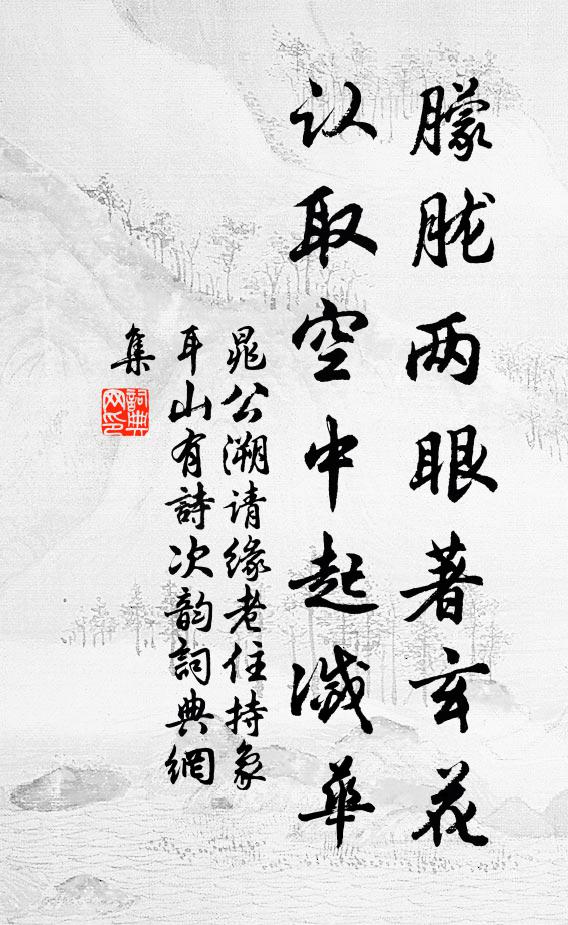 朦胧两眼著玄花
认取空中起灭華
晁公溯请缘老住持象
耳山有詩次韵詞典網
集
詞典
网印